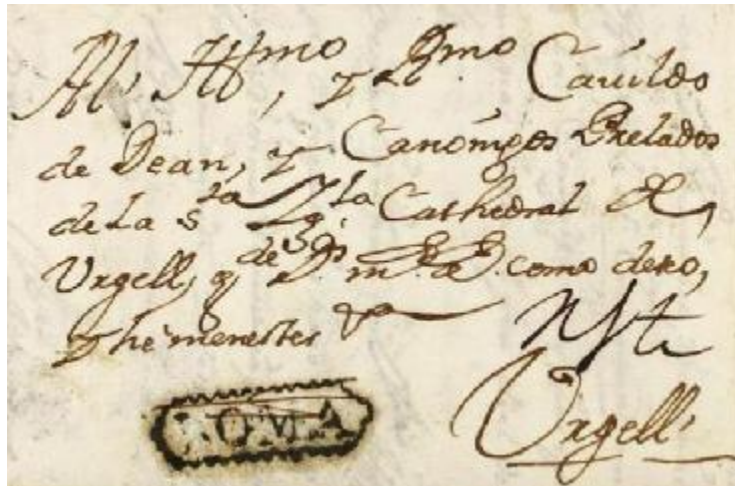 Al Ill^mo, y R^mo Cavildo
de Dean, y Canónigos Prelados
de la S^ta Ig^la Cathedral de
Urgell, q^e g^de D^s m^s a^s como deseo,
y he menester
Urgell
ROMA